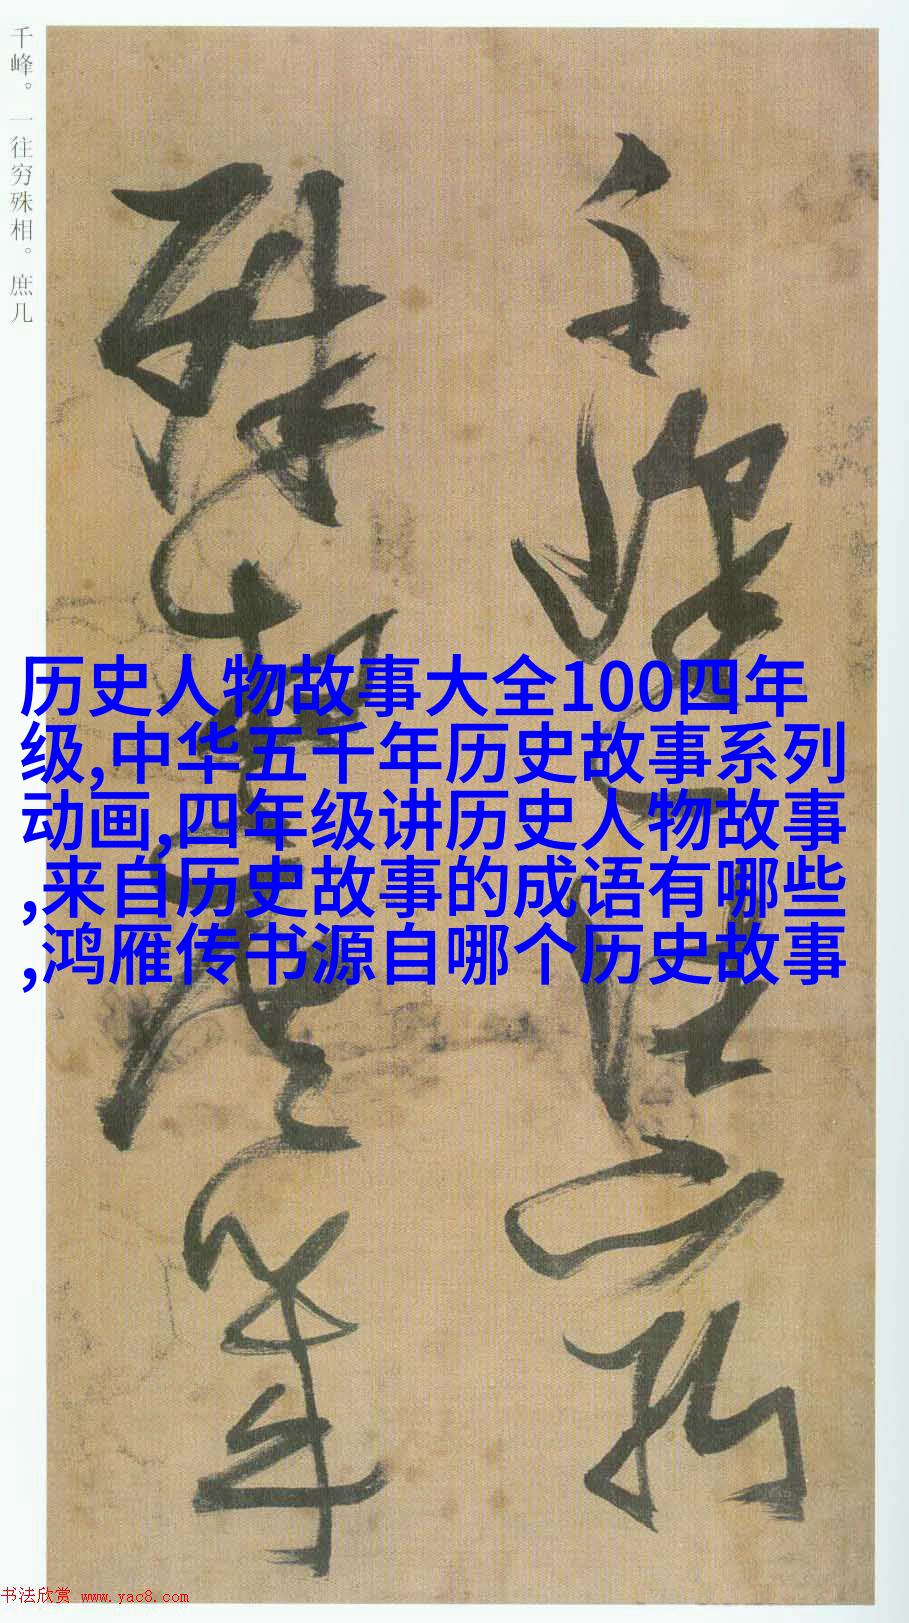 千峰。一往穷殊相。庶几
千峰一往穷
殊相庶几
历史人物故事大全100四年
级,中华五千年历史故事系列
动画,四年级讲历史人物故事
,来自历史故事的成语有哪些
,鸿雁传书源自哪个历史故事
书法欣赏 www.yac8.com